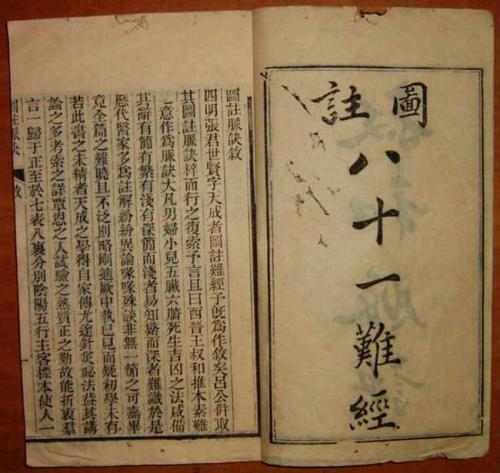 圖註
八十一難經
圖註脈訣敘
四明張君世賢字天成者圖註難經予既為作敘矣呂公併取
其圖註脈訣梓而行之復索予言且曰西晉王叔和推本素難
之意作為脈訣大凡男婦小兒五臟六腑死生吉凶之法咸備
其辭有簡有繁有淺有深簡而淺者易知繁而深者難識於是
歷代醫家多為註解紛紛異論喙喙殊談非無一簡之可嘉畢
竟全篇之難曉且不泛則略適厥中執已見而疑初學未有
若此書之未精者天成之學得自家傳尤達針灸秘法茲其講
論之多考索之詳覃思之久試驗之熟質正之勤故能折衷羣
言一歸于正至於七表八裏分別陰陽五行主客標本使人一
圖註脈訣 敘